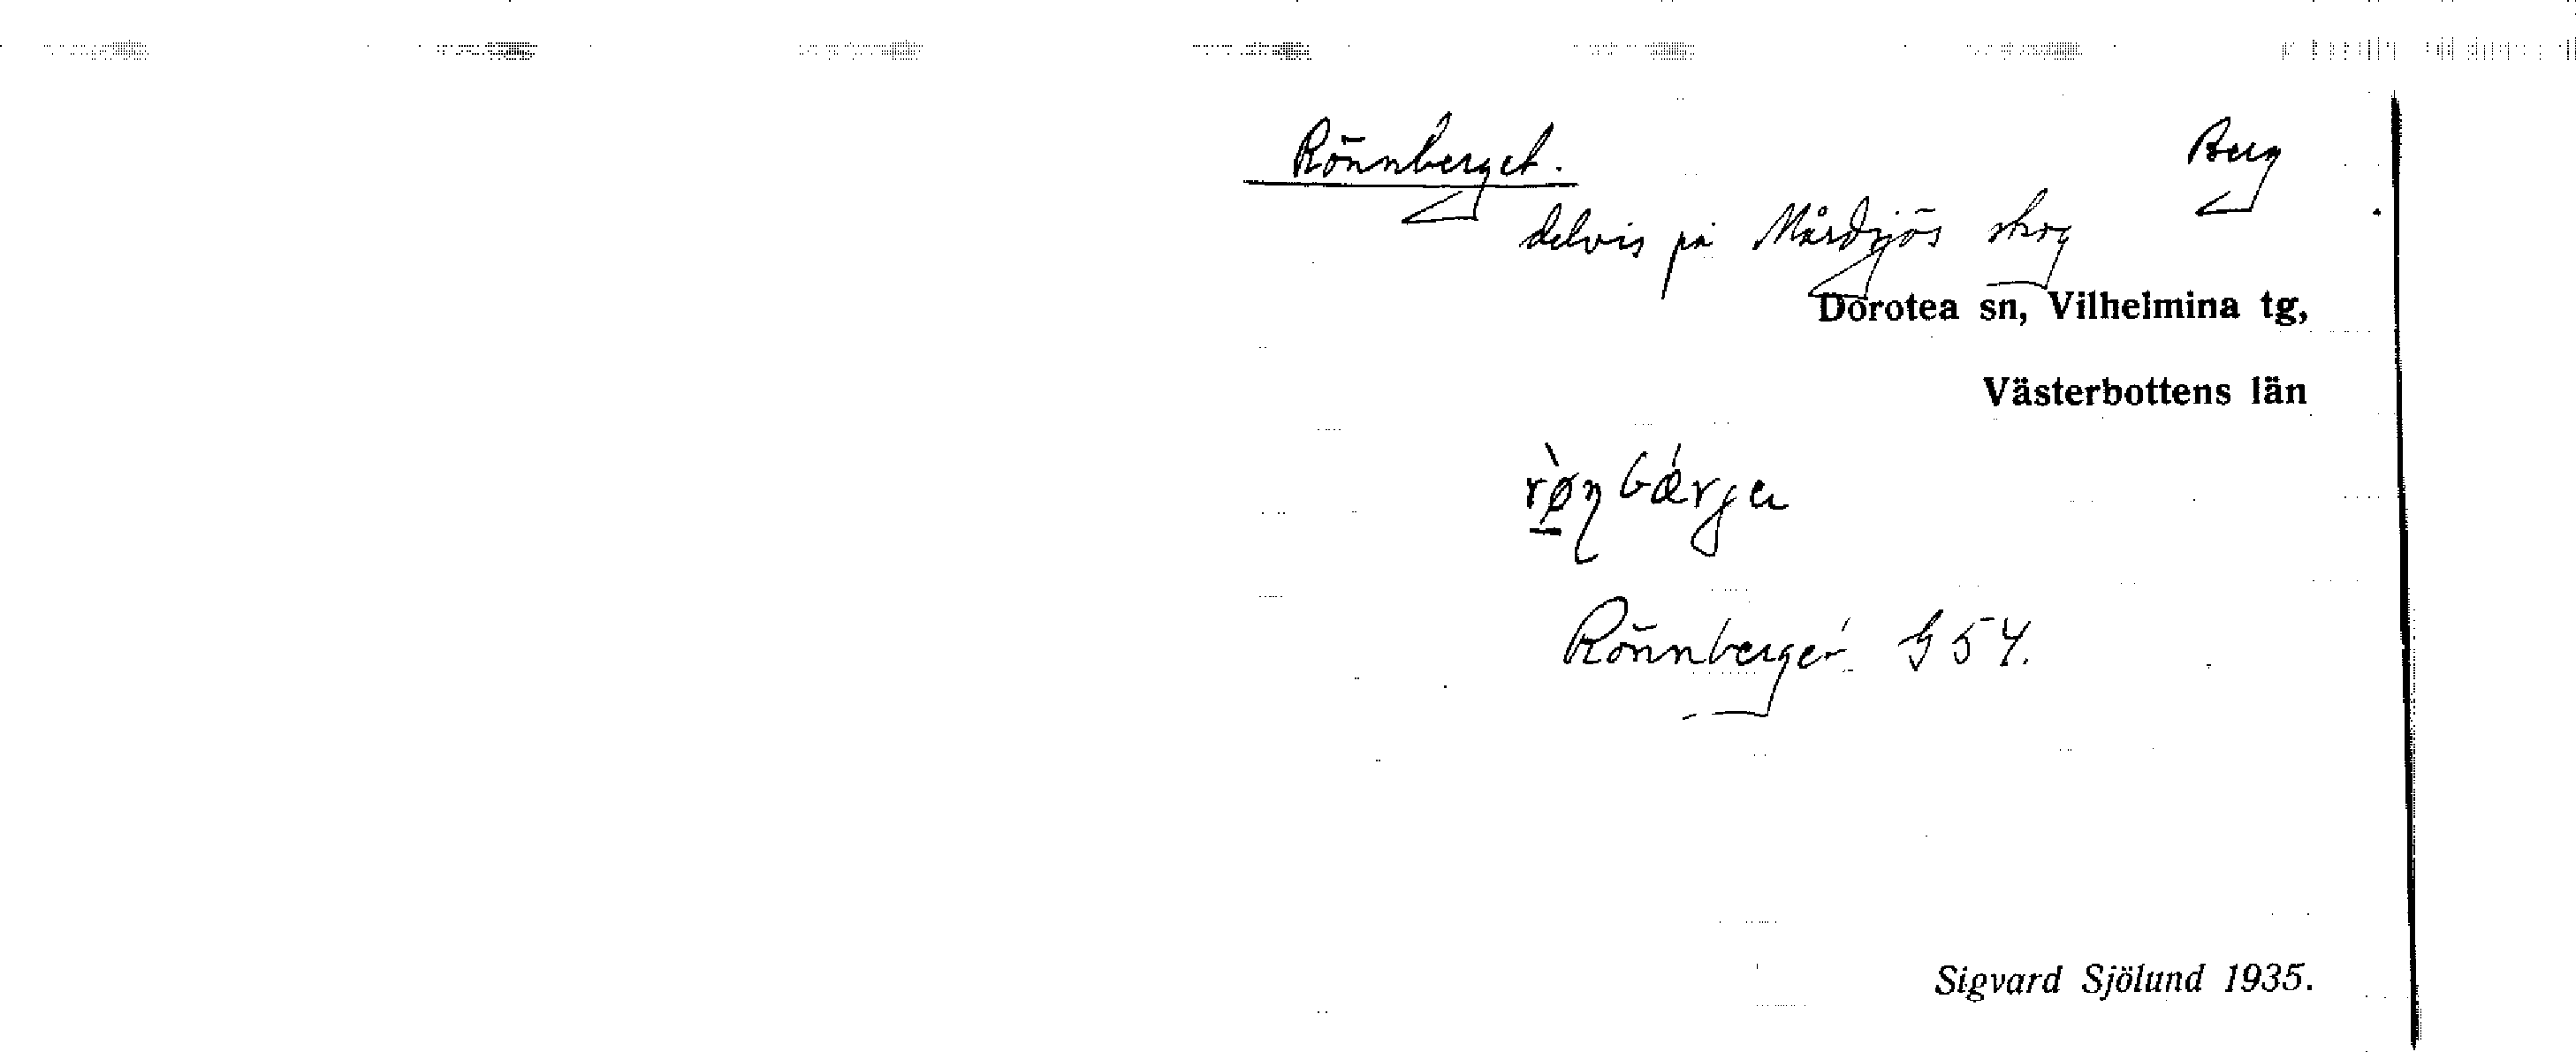 Rönnberget. Berg
delvis på Mårdsjös skog
Dorotea sn, Vilhelmina tg,
Västerbottens län
Rönnberget G 54.
Sigvard Sjölund 1935.